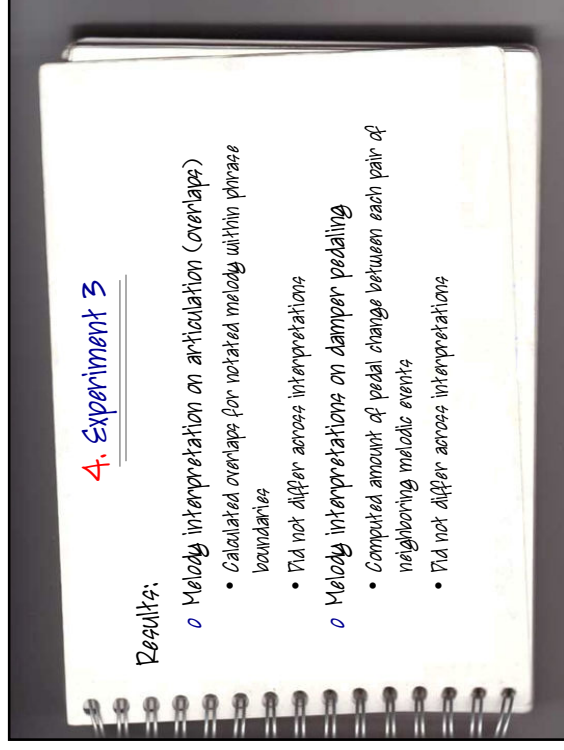 4. Experiment 3
Results:
o Melody interpretation on articulation (overlaps)
• Calculated overlaps for notated melody within phrase
boundaries
• Did not differ across interpretations
o Melody interpretations on damper pedaling
• Computed amount of pedal change between each pair of
neighboring melodic events
• Did not differ across interpretations